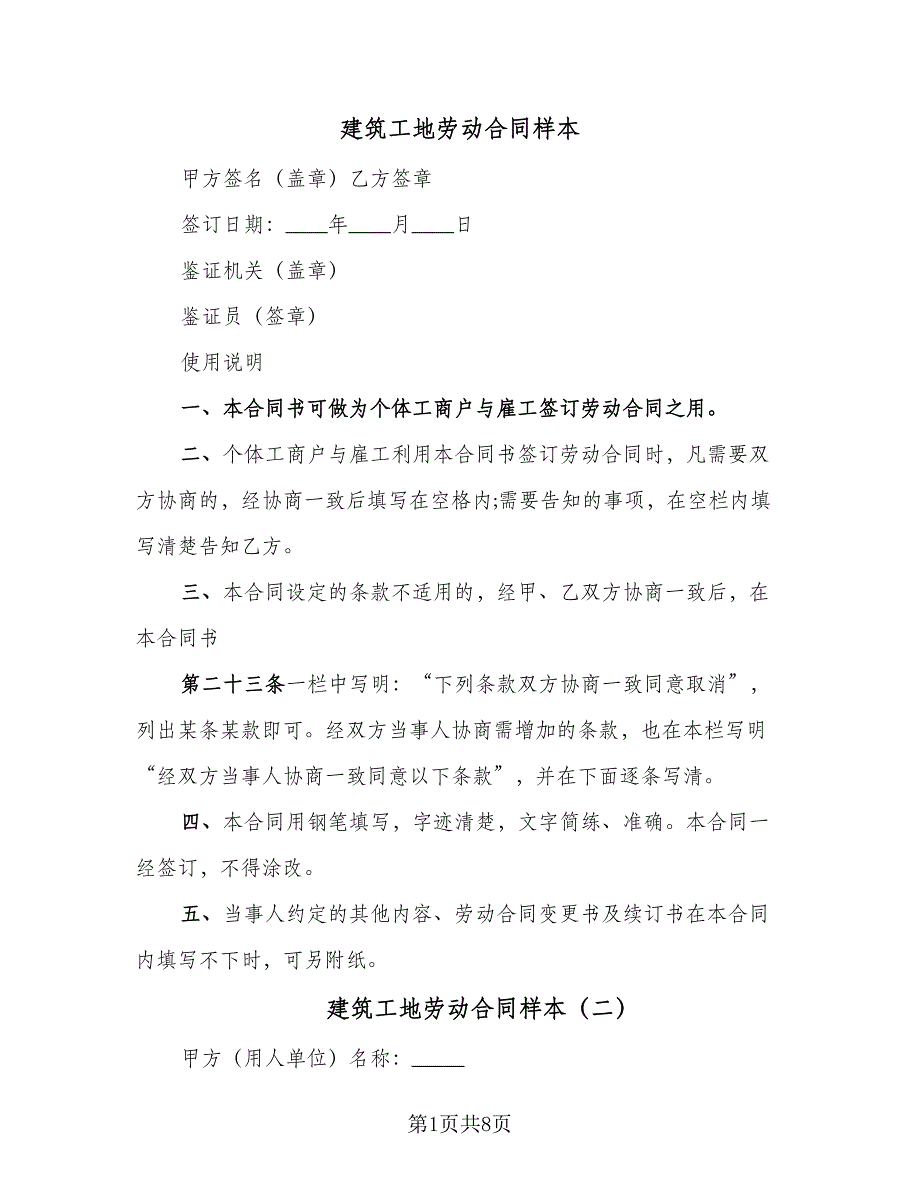 建筑工地劳动合同样本
甲方签名（盖章）乙方签章
签订日期：____年____月____日
鉴证机关（盖章）
鉴证员（签章）
使用说明
一、本合同书可做为个体工商户与雇工签订劳动合同之用。
二、个体工商户与雇工利用本合同书签订劳动合同时，凡需要双
方协商的，经协商一致后填写在空格内;需要告知的事项，在空栏内填
写清楚告知乙方。
三、本合同设定的条款不适用的，经甲、乙双方协商一致后，在
本合同书
第二十三条一栏中写明：“下列条款双方协商一致同意取消”，
列出某条某款即可。经双方当事人协商需增加的条款，也在本栏写明
“经双方当事人协商一致同意以下条款”，并在下面逐条写清。
四、本合同用钢笔填写，字迹清楚，文字简练、准确。本合同一
经签订，不得涂改。
五、当事人约定的其他内容、劳动合同变更书及续订书在本合同
内填写不下时，可另附纸。
建筑工地劳动合同样本（二）
甲方（用人单位）名称：_____
第1页共8页